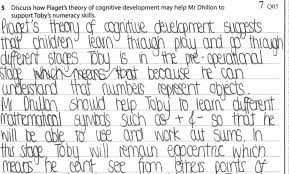 5 Discuss how Piaget's theory of cognitive development may help Mr Dhillon to
support Toby's numeracy skills.
7 Q05
Piaget's theory of cognitive development suggests
that children learn through play and go through
different stages. Toby is in the pre-operational
stage which means that because he can
understand that numbers represent objects.
Mr Dhillon should help Toby to learn different
mathematical symbols such as + & - so that he
will be able to use and work out sums. In
this stage, Toby will remain egocentric which
means he can't see from others points of